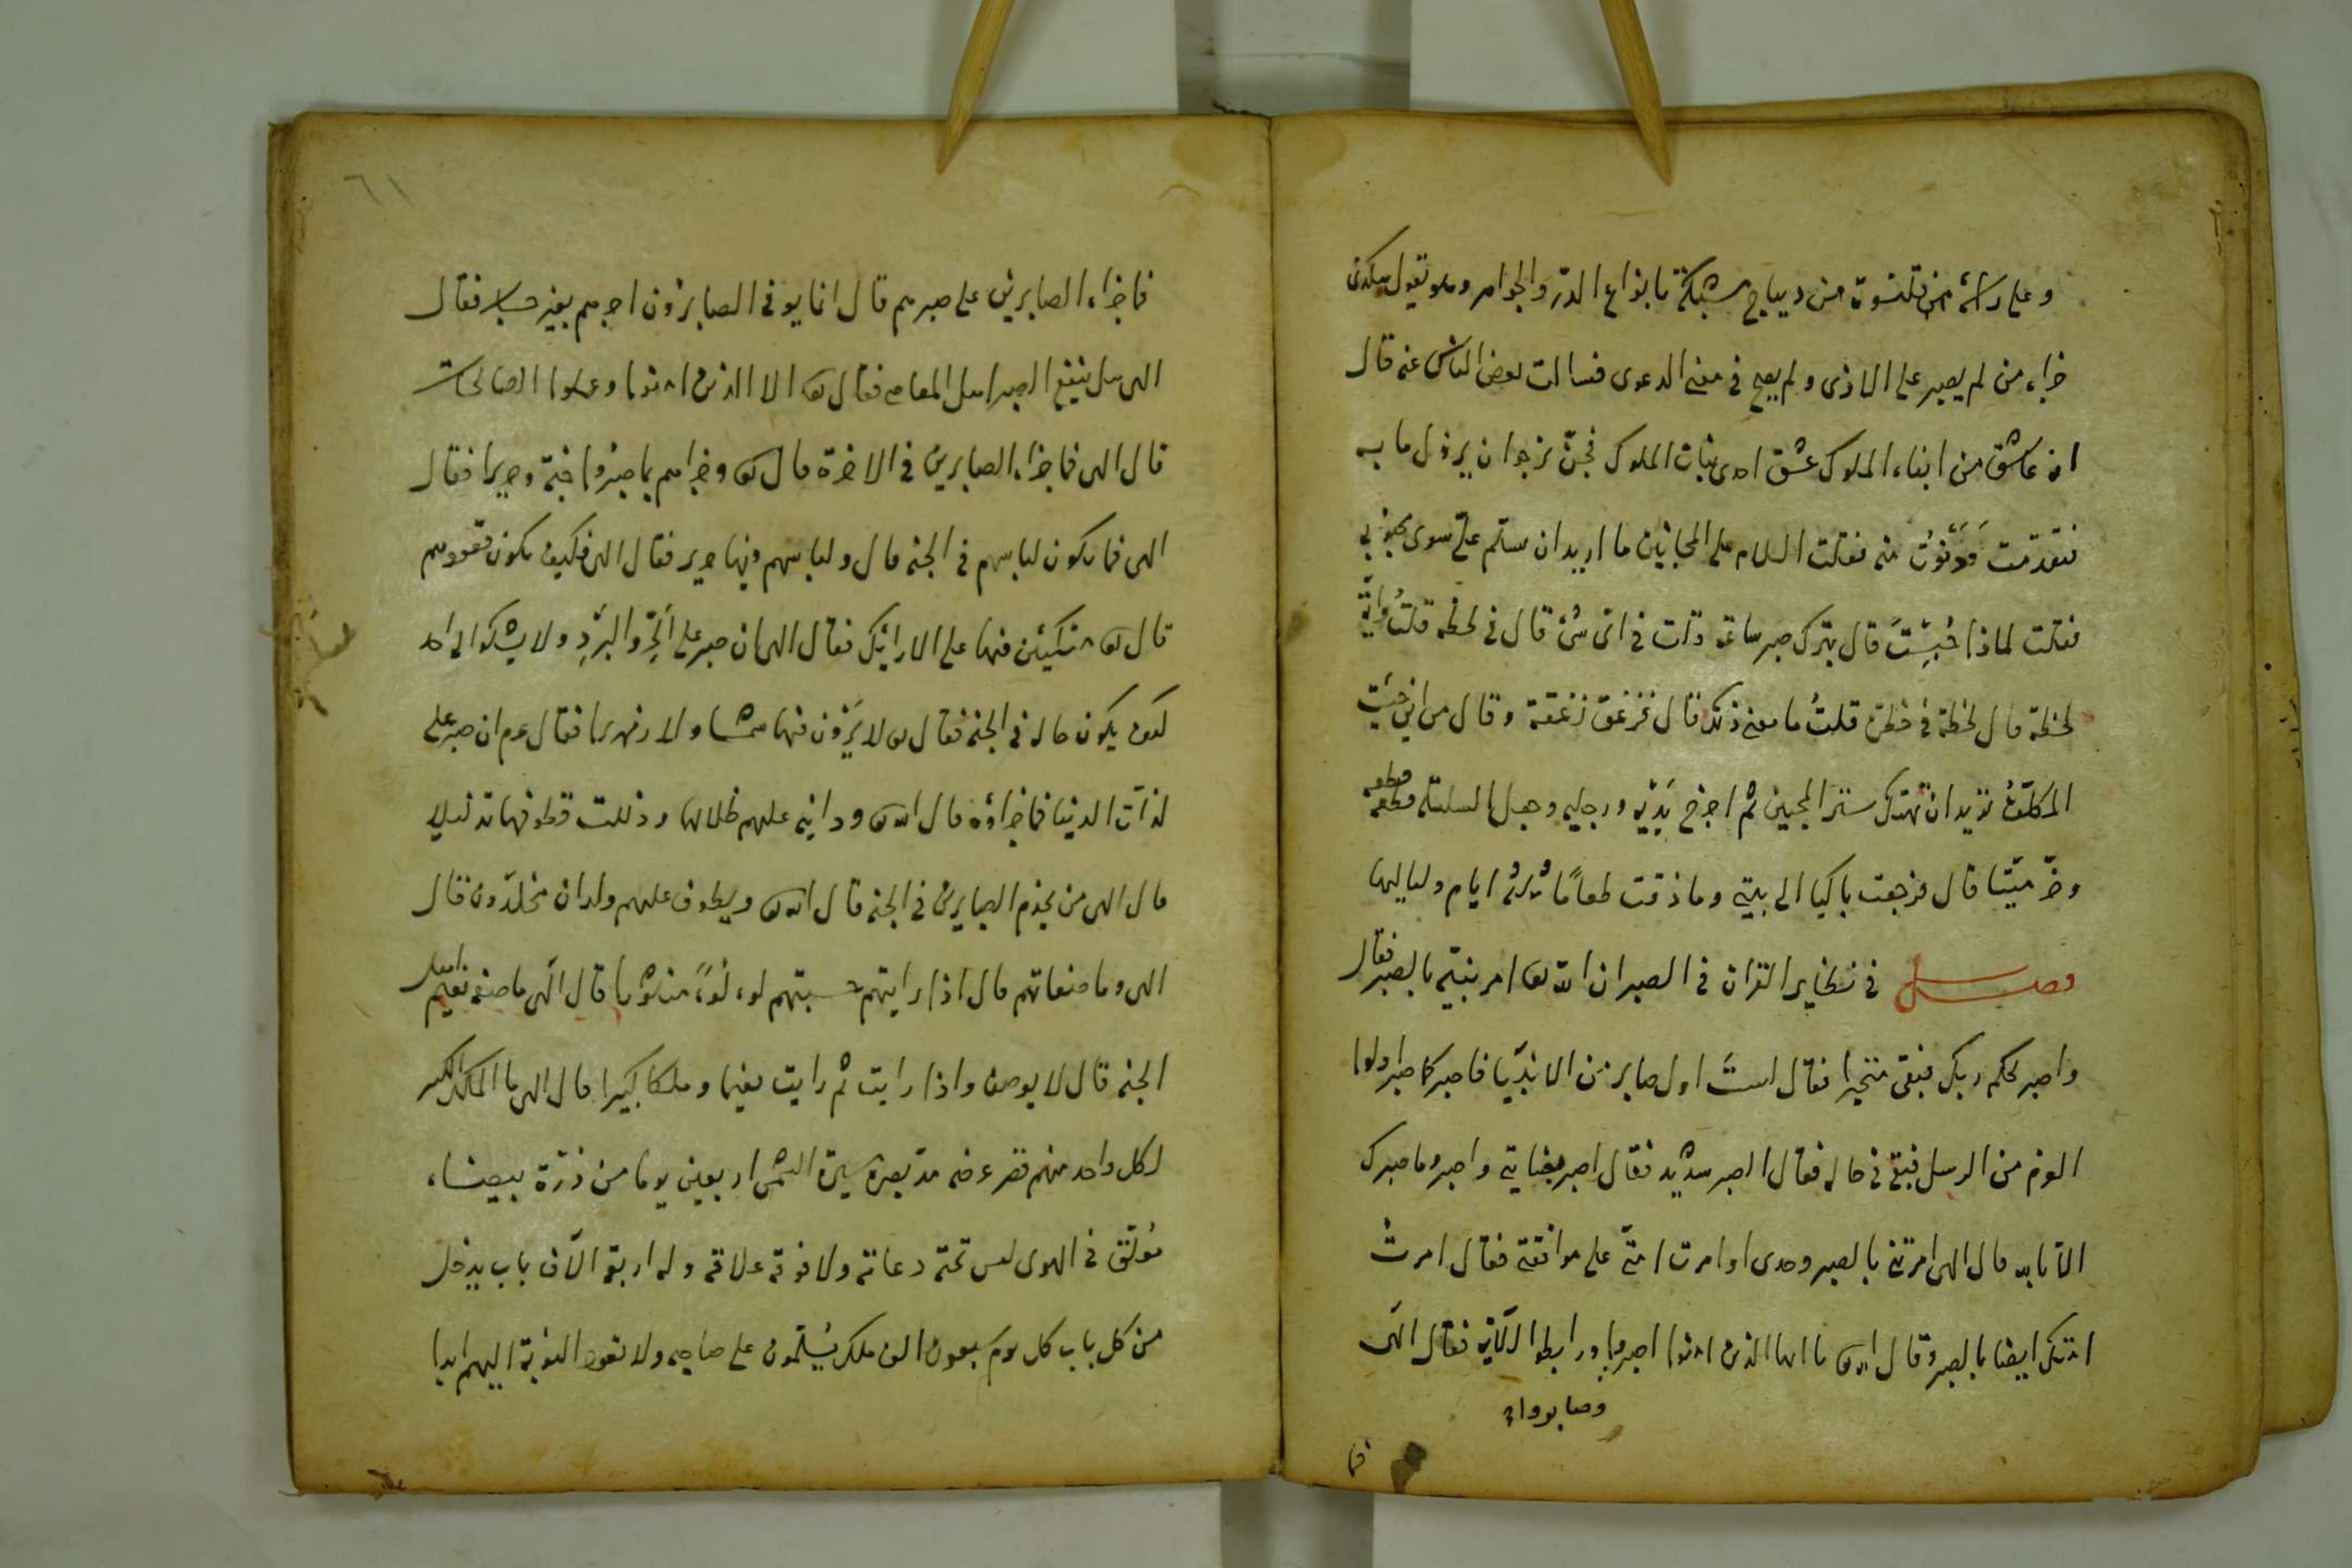 وعلى راسه قلنسوة من ديباج مشبكة بانواع الدرّ والجواهر وهو يقول هكذى
جزاء من لم يصبر على الاذى ولم يصح في معنى الدعوى فسالت بعض الناس عنه قال
انه عاشق من ابناء الملوك عشق احدى بنات الملوك فجنّ نرجوا ان يزول ما به
فتقدمت فدنوت منه فقلت السلام على المجانين ما اريد ان يسلم علىّ سوى محبوبي
فقلت لماذا حُبِستَ قال بترك صبر ساعة قلت في اى شئ قال في لحظة قلتُ وايّة
لحظة قال لحظة في خطرة قلتُ ما معنى ذلك قال فزعق زعقة وقال من اين جئت
المكلّف تريد ان تهتك ستر المحبين ثم اخرج يديه ورجليه وجعل السلسلة قطعه قطعه
وخرّ ميّتا قال فرجعت باكيا الى بيتي وما ذقت طعامًا ثلثة ايام ولياليها
فصل في نظاير القران في الصبر ان الله تع امر بنبيّه بالصبر فقال
واصبر لحكم ربك فبقى متحيرا فقال لستَ اول صابر من الانبيّا فاصبر كما صبر اولوا
العزم من الرسل فبقى في حاله فقال الصبر شديد فقال اصبر بعنايتي واصبر وما صبرك
الا بالله قال الهى امرتنى بالصبر وحدى او امرت امتى على موافقتى فقال امرت
امتك ايضا بالصبر وقال الله تع يا ايها الذين امنوا اصبروا ورابطوا الآية فقال الهى
وصابروا
فما
٦١
فما جزاء الصابرين على صبرهم قال انما يوفى الصابرون اجرهم بغير حساب فقال
الهى هل ينفع الصبر اهل المعاصى فقال تع الا الذين امنوا وعملوا الصالحات
قال الهى فما جزاء الصابرين في الاخرة قال تع وجزاهم بما صبروا جنة وحريرا فقال
الهى فما يكون لباسهم في الجنه قال ولباسهم فيها حرير فقال الهى فكيف يكون قعودهم
قال تع متكئين فيها على الارايك فقال الهى ان صبر على الحَرِّ والبَردِ ولا يشكوا الى احد
كيف يكون حاله في الجنه فقال تع لا يَرَوْن فيها شمسا ولا زمهريرا فقال عم ان صبر على
لذات الدنيا فما جزاؤه قال الله تع ودانية عليهم ظلالها وذللت قطوفها تذليلا
قال الهى من يخدم الصابرين في الجنه قال الله تع ويطوف عليهم ولدان مخلّدون قال
الهى وما صفاتهم قال اذا رايتهم حسبتهم لؤلؤاً منثورا قال الٓهى ما صفة نعيم اهل
الجنه قال لا يوصف واذا رايت ثم رايت نعيما وملكا كبيرا قال الهى ما الملك الكبير
لكل واحد منهم قصر عرضه مدّ بصره مسيرة الشمس اربعين يوما من درّة بيضاء
مُعلّق في الهوى ليس تحته دعامة ولا فوقه علاقه وله اربعة الآف باب يدخل
من كل باب كل يوم سبعون الف ملك يُسلّمون على صاحبه ولا تعود النوبة اليهم ابدا